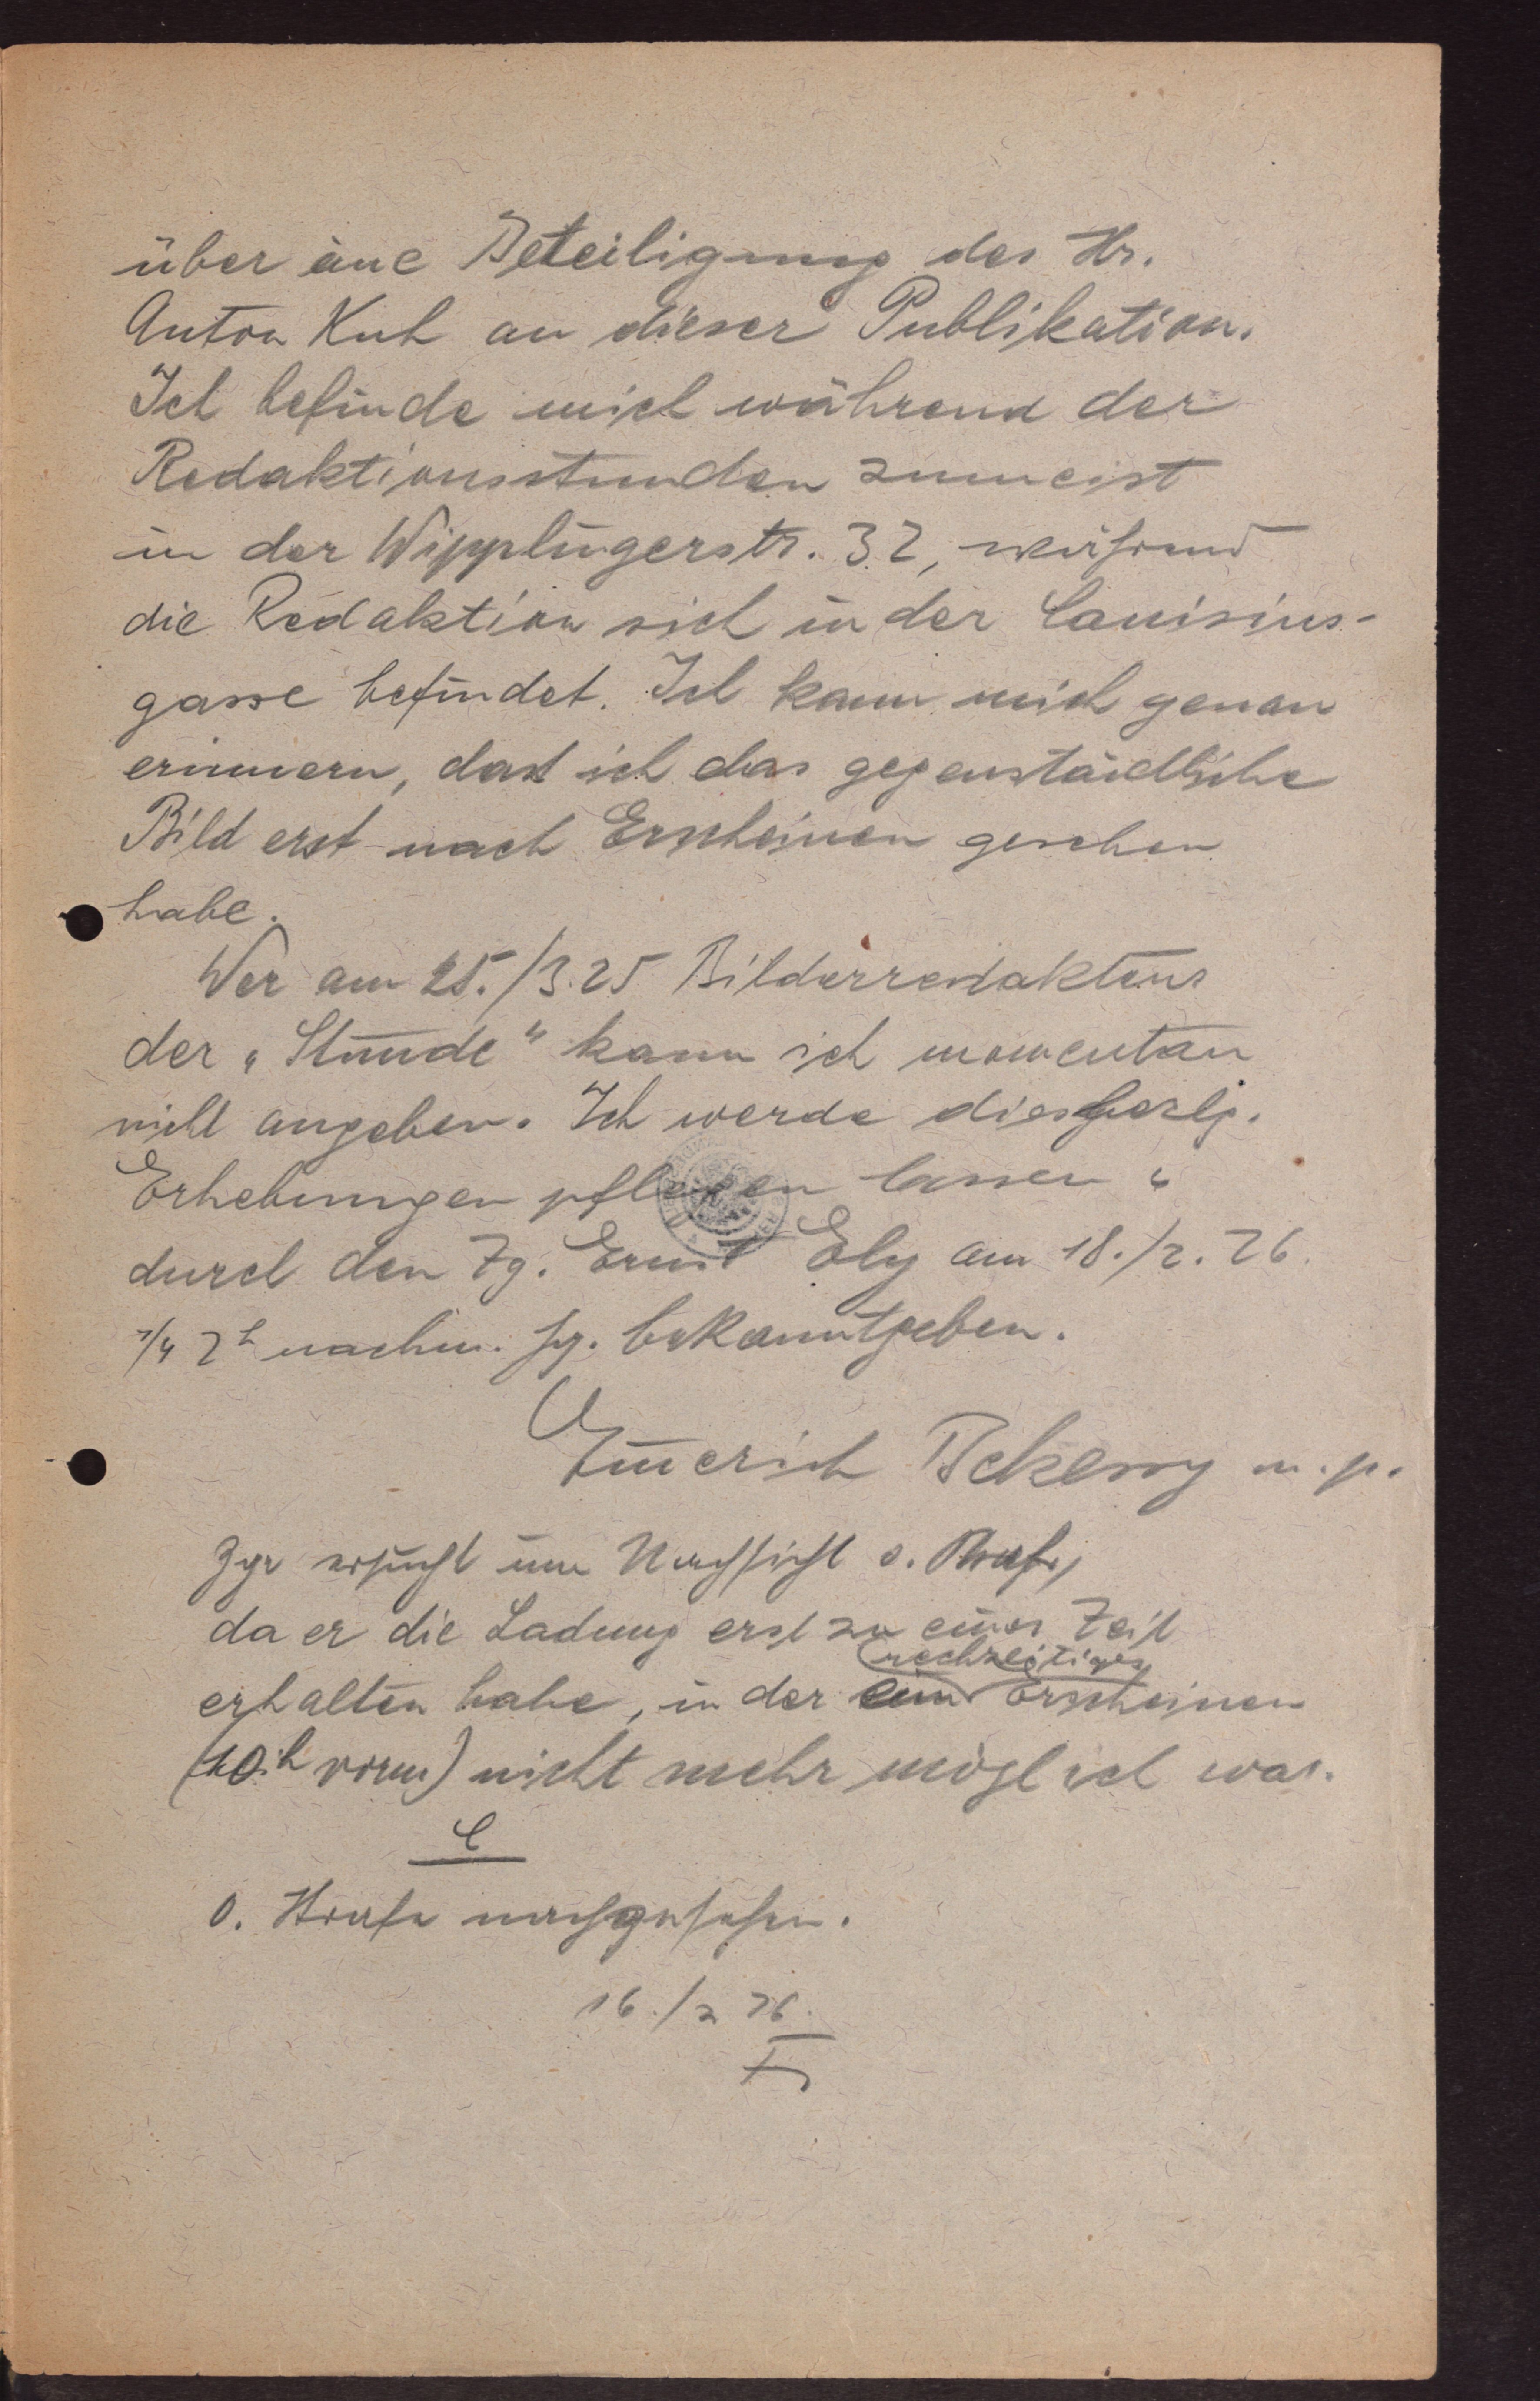 über eine Beteiligung des Hr.
Anton Kuh an dieser Publikation.
Ich befinde mich während der
Redaktionsstunden zumeist
in der Wipplingerstr. 32, während
die Redaktion sich in der Canisius-
gasse befindet. Ich kann mich genau
erinnern, dast ich das gegenständliche
Bild erst nach Erscheinen gesehen
habe.
Wer am 25./3.25 Bilderredakteur
der „Stunde" kann ich momentan
nicht angeben. Ich werde diesbezlg.
Erhebungen pflegen lassen u
durch den Zg. Ernst Ely am 18./2.26.
1/4 2h nachm. hg. bekanntgeben.
Emerich Bekessy m.p.
Zge ersucht um Nachsicht d. Strafe,
da er die Ladung erst zu einer Zeit
rechzeitiges
erhalten habe, in der ein Erscheinen
(10h vorm) nicht mehr möglich war.
O. Strafe nachgesehen.
16./2 26.